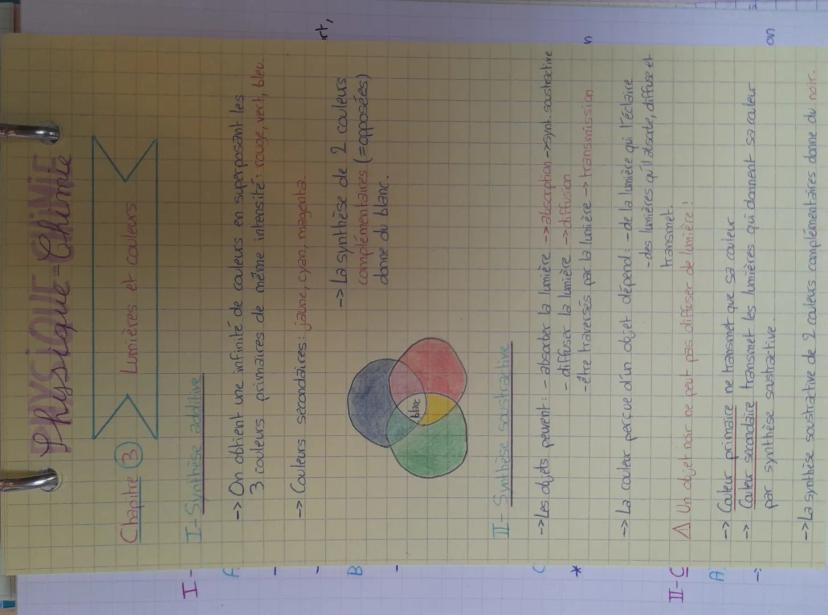 PHYSIQUE-CHIMIE
Physique-Chimie
Chapitre 3
Lumières et couleurs
I - Synthèse additive
-> On obtient une infinité de couleurs en superposant les
3 couleurs primaires de même intensité: rouge, vert, bleu.
-> Couleurs secondaires: jaune, cyan, magenta.
-> La synthèse de 2 couleurs
complémentaires (=opposées)
donne du blanc.
blanc
II - Synthèse soustractive
-> Les objets peuvent: - absorber la lumière -> absorption -> synt. soustractive
- diffuser la lumière -> diffusion
- être traversés par la lumière -> transmission
-> La couleur perçue d'un objet dépend: - de la lumière qui l'éclaire
- des lumières qu'il absorbe, diffuse et
transmet.
⚠ Un objet noir ne peut pas diffuser de lumière !
-> Couleur primaire ne transmet que sa couleur
-> Couleur secondaire transmet les lumières qui donnent sa couleur
par synthèse soustractive.
-> La synthèse soustractive de 2 couleurs complémentaires donne du noir.
I -
A
-
-
B
-
C
*
II - C
A
rt,
n
on